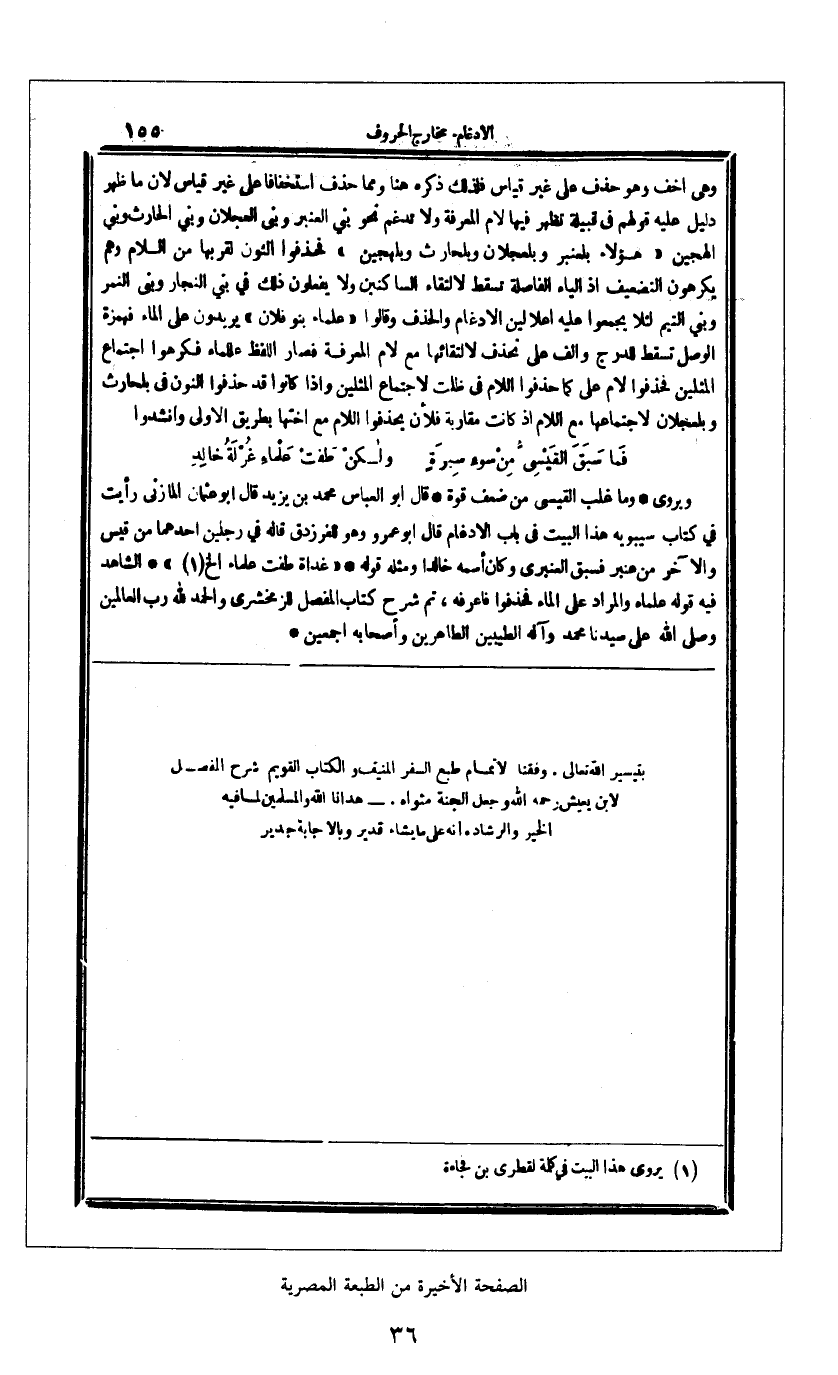 الادغام. مخارج الحروف ١٥٥
وهى اخف وهو حذف على غير قياس فلذلك ذكره هنا ومما حذف استخفافا على غير قياس لان ما ظهر
دليل عليه قولهم فى قبيلة تظهر فيها لام المعرفة ولا تدغم نحو بني العنبر وبنى العجلان وبني الحارث وبني
الهجين « هـؤلاء بلعنبر وبلعجلان وبلحارث وبلهجين » فحذفوا النون لقربها من اللام وهم
يكرهون التضعيف اذ الياء الفاصلة تسقط لالتقاء الساكنين ولا يفعلون ذلك في بني النجار وبنى النمر
وبني التيم لئلا يجمعوا عليه اعلالين الادغام والحذف وقالوا « علماء بنو فلان » يريدون على الماء فهمزة
الوصل تسقط للدرج والف على تحذف لالتقائها مع لام المعرفـة فصار اللفظ عللماء فكرهوا اجتماع
المثلين فحذفوا لام على كما حذفوا اللام فى ظلت لاجتماع المثلين واذا كانوا قد حذفوا النون فى بلحارث
وبلعجلان لاجتماعها مع اللام اذ كانت مقاربة فلأن يحذفوا اللام مع اختها بطريق الاولى وانشدوا
فَما سَبَقَ القَيْسِى مِنْ سوء سِيرَةٍ ولـكنْ طفَتْ عَلْماءِ غُرْلَةُ خالِدِ
ويروى * وما غلب القيسى من ضعف قوة * قال ابو العباس محمد بن يزيد قال ابو عثمان المازنى رأيت
في كتاب سيبويه هذا البيت فى باب الادغام قال ابو عمرو وهو للفرزدق قاله في رجلين احدهما من قيس
والآخر من عنبر فسبق العنبرى وكان أسمه خالدا ومثله قوله * « غداة طفت علماء الخ (١) » * الشاهد
فيه قوله علماء والمراد على الماء فحذفوا فاعرفه ، تم شرح كتاب المفصل للزمخشرى والحمد لله رب العالمين
وصلى الله على سيدنا محمد وآله الطيبين الطاهرين وأصحابه اجمعين *
بتيسير الله تعالى . وفقنا لاتمـام طبع السفر المنيف والكتاب القويم شرح المفصـل
لابن يعيش رحمه الله وجعل الجنة مثواه . ــ هدانا الله والمسلمين لما فيه
الخير والرشاد . انه على ما يشاء قدير وبالاجابة جدير
(١) يروى هذا البيت في كلمة لقطرى بن فجاءة
الصفحة الأخيرة من الطبعة المصرية
٣٦